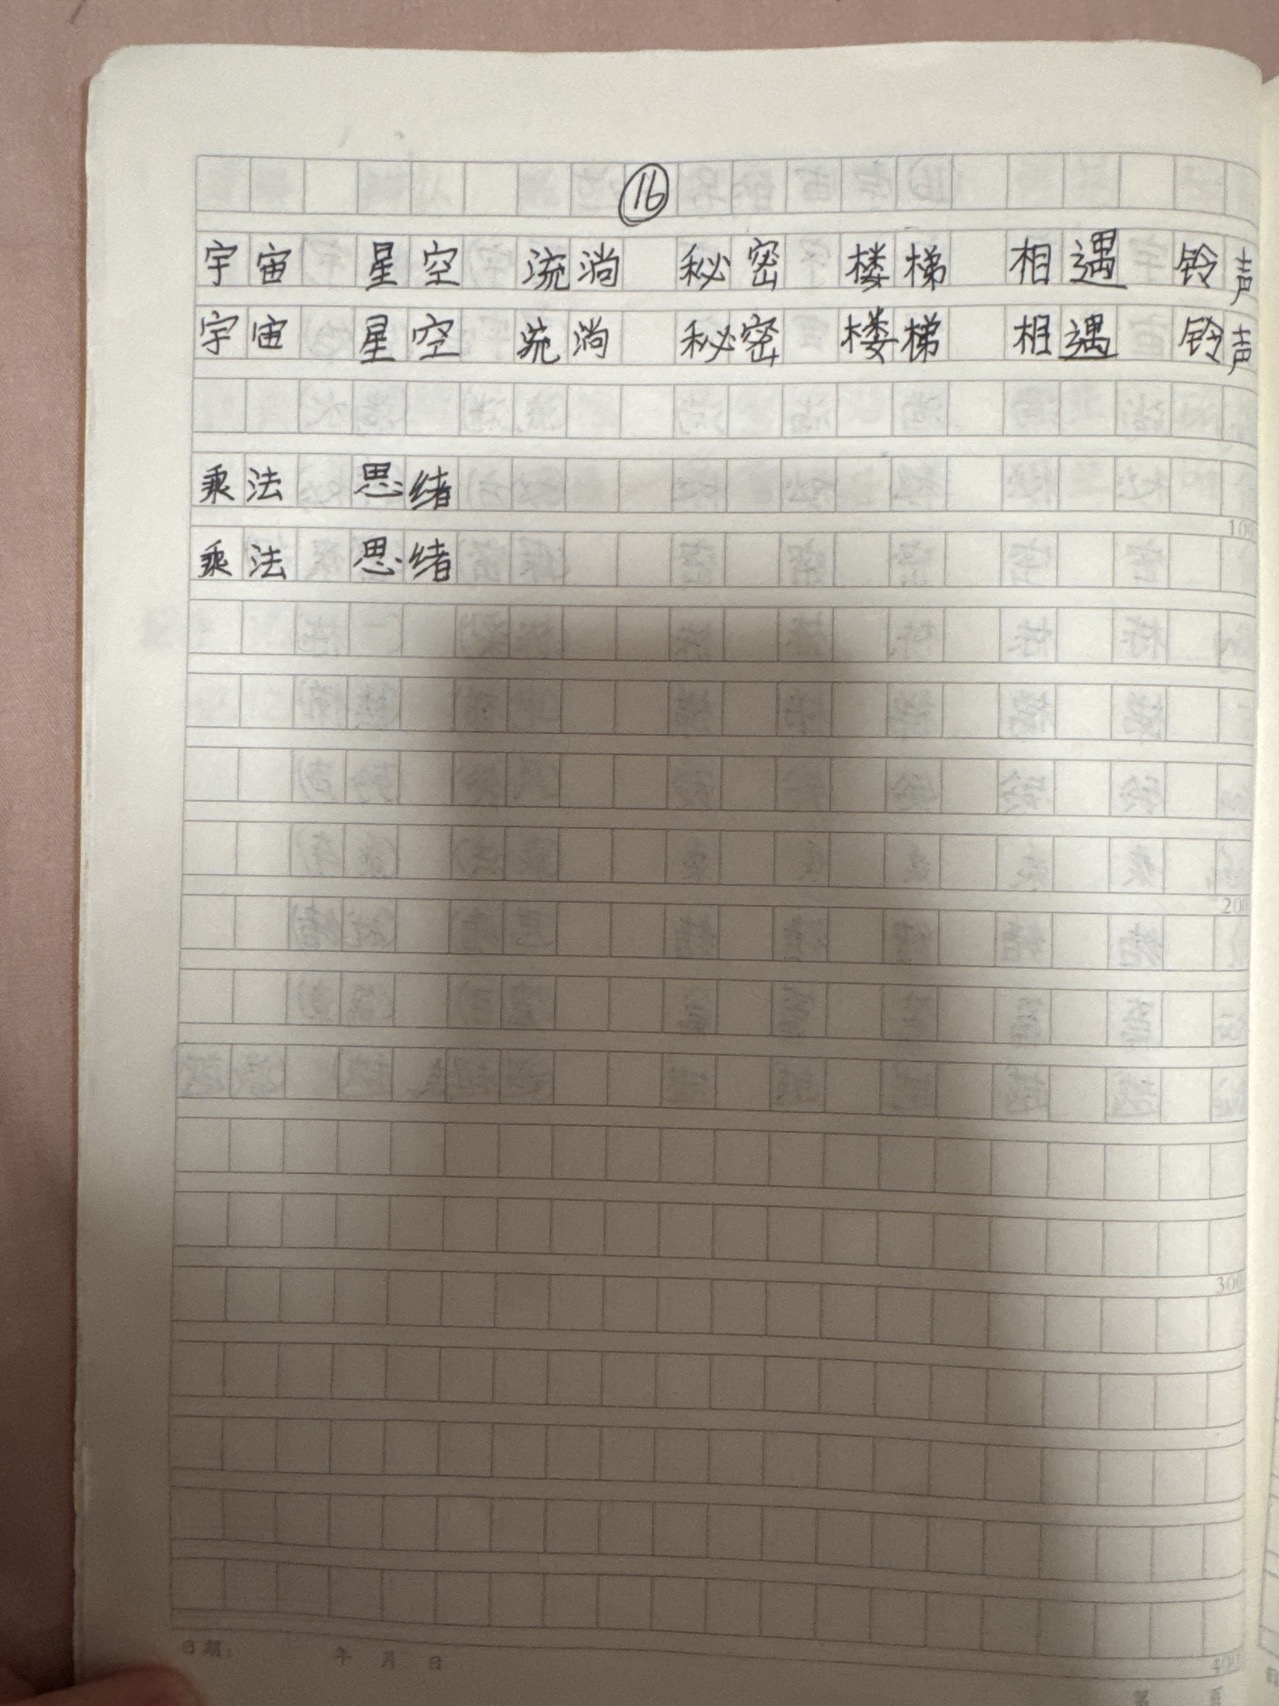 16
宇宙 星空 流淌 秘密 楼梯 相遇 铃声
宇宙 星空 流淌 秘密 楼梯 相遇 铃声
乘法 思绪
100
乘法 思绪
200
300
日期： 年 月 日 400
第 页